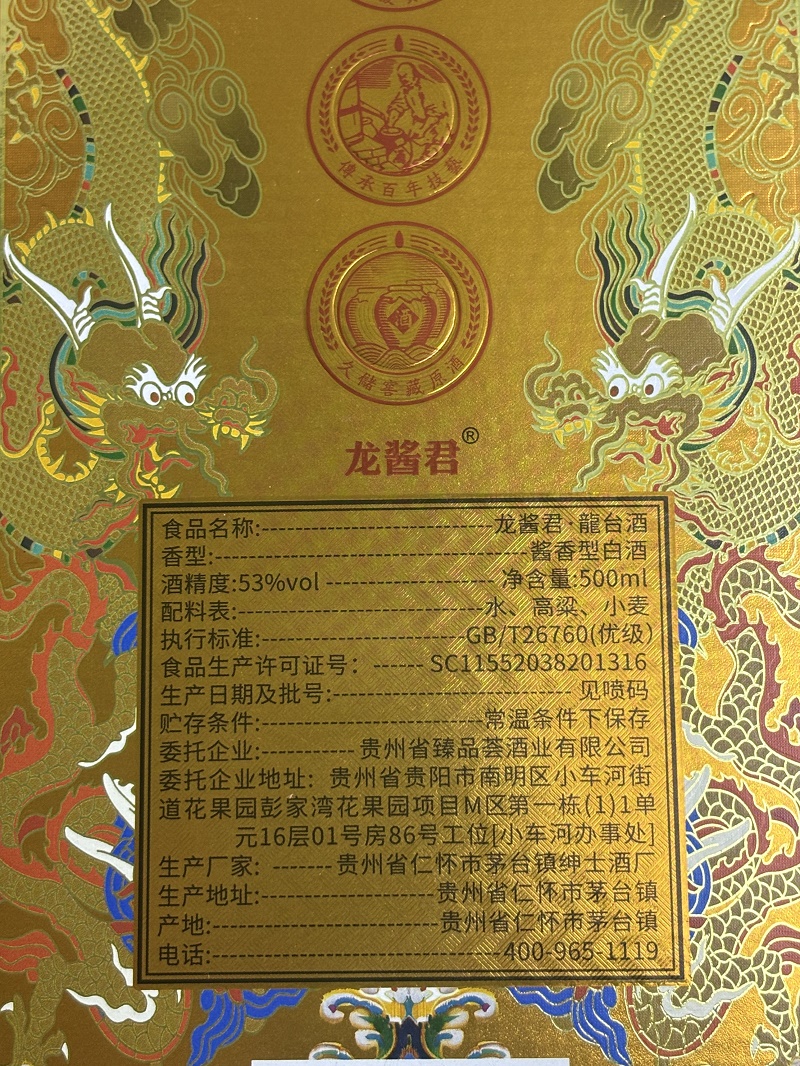 傳承百年技藝
酒
久儲窖藏原酒
龙酱君®
食品名称:------龙酱君·龍台酒
香型:------酱香型白酒
酒精度:53%vol ------ 净含量:500ml
配料表:------水、高粱、小麦
执行标准:------GB/T26760(优级)
食品生产许可证号: ------ SC11552038201316
生产日期及批号:------ 见喷码
贮存条件:------常温条件下保存
委托企业:------贵州省臻品荟酒业有限公司
委托企业地址: 贵州省贵阳市南明区小车河街
道花果园彭家湾花果园项目M区第一栋(1)1单
元16层01号房86号工位[小车河办事处]
生产厂家: ------贵州省仁怀市茅台镇绅士酒厂
生产地址:------贵州省仁怀市茅台镇
产地:------贵州省仁怀市茅台镇
电话:------400-965-1119